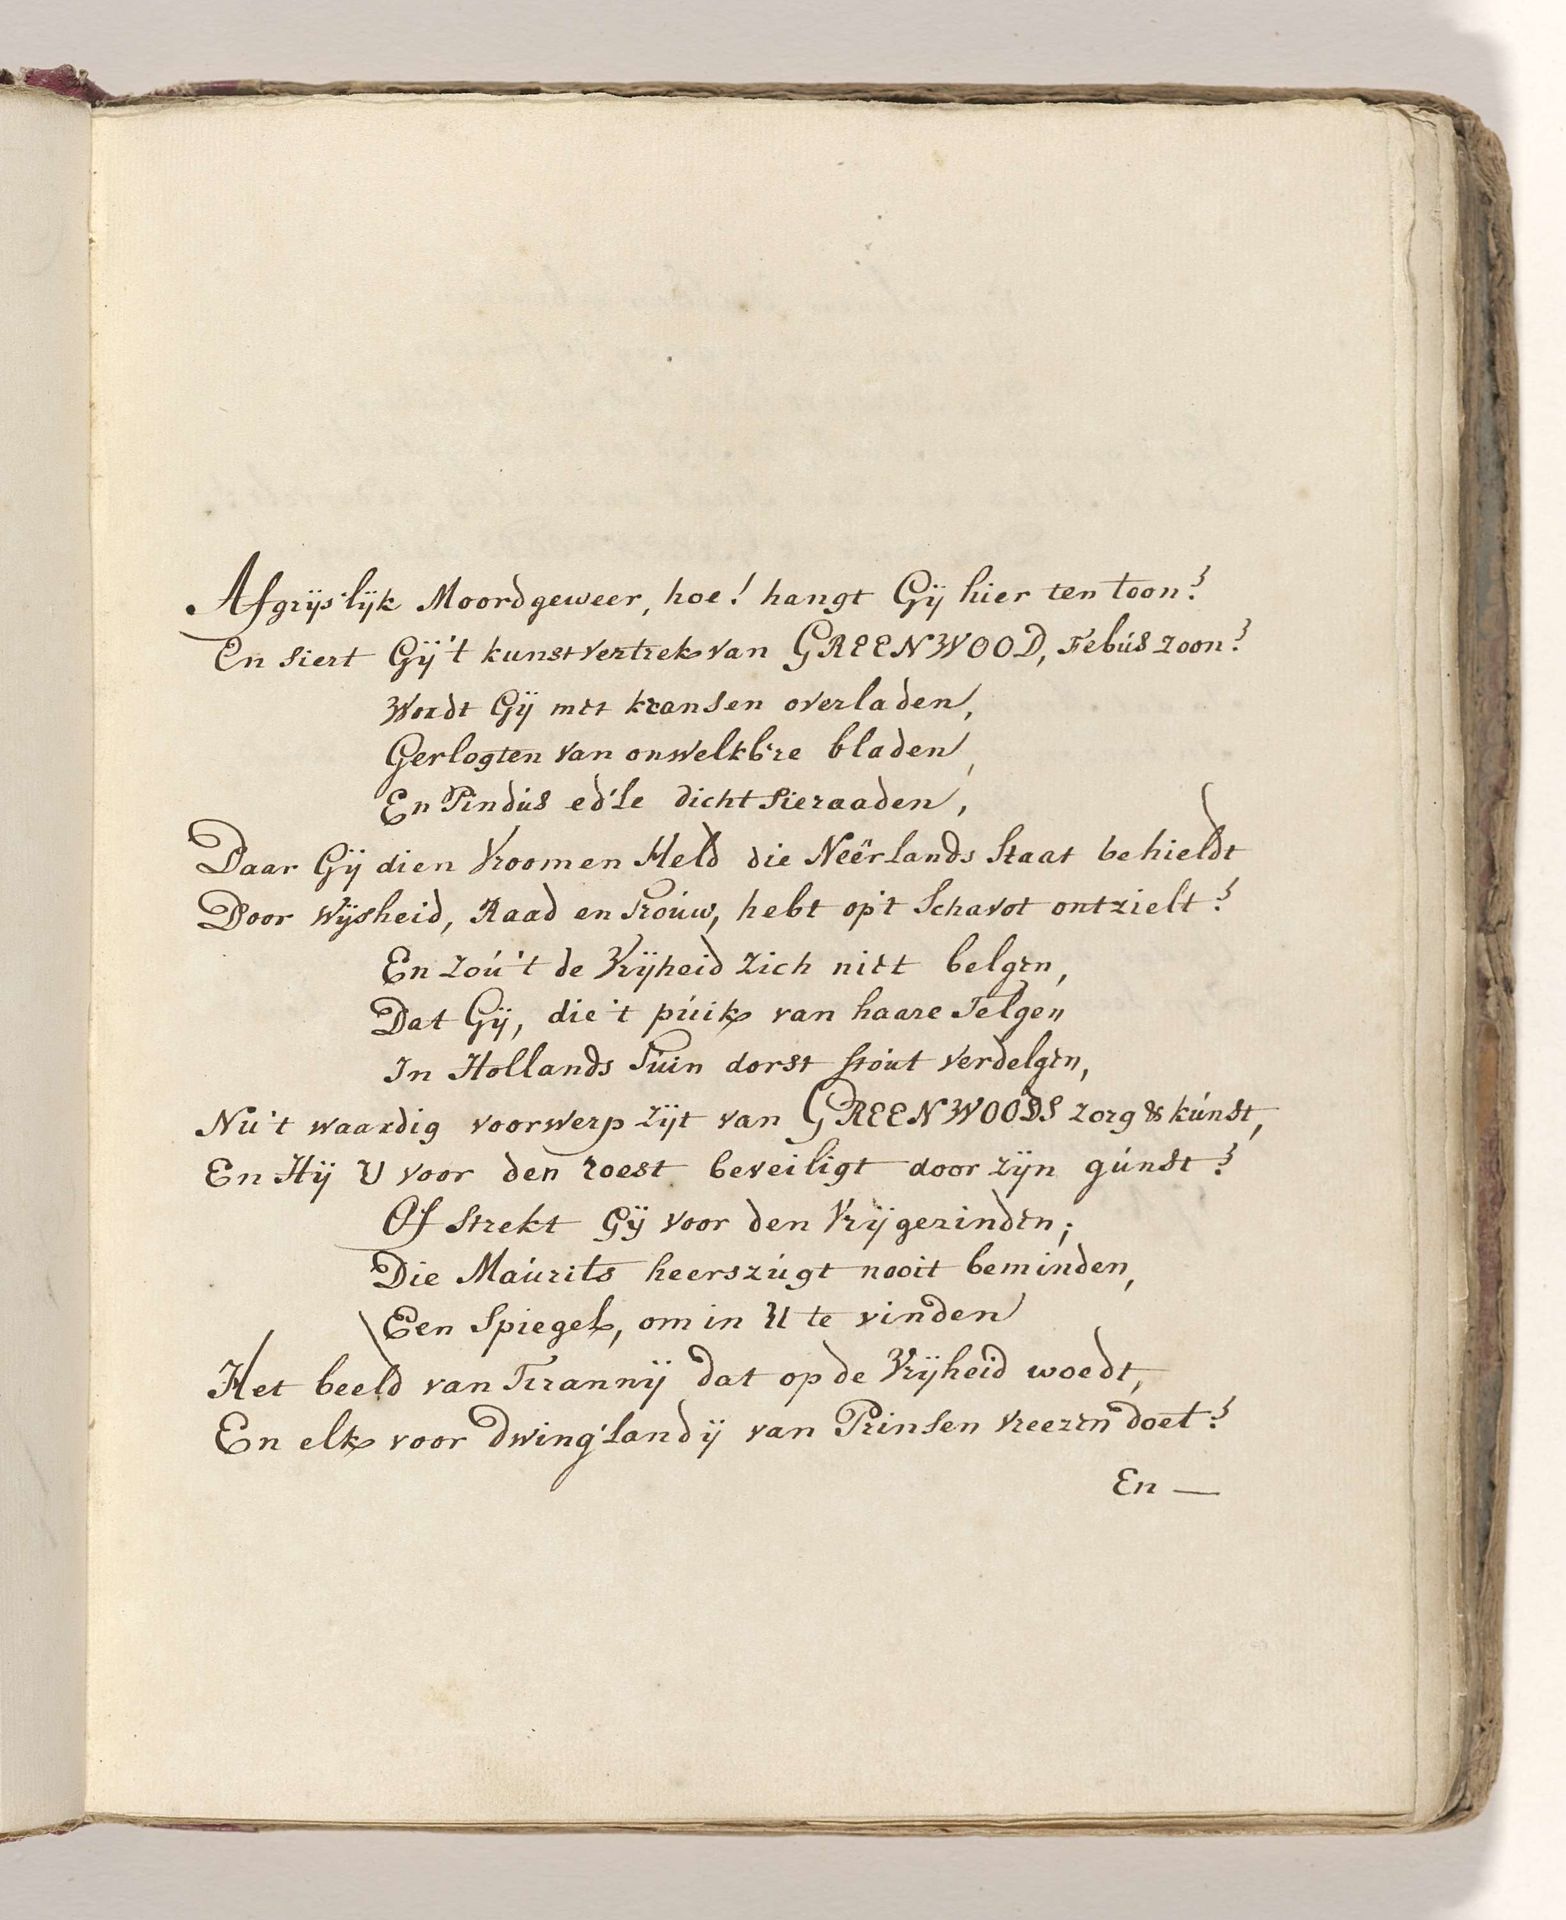 Afgrijs'lijk Moordgeweer, hoe! hangt Gij hier ten toon?
En siert Gij 't kunstvertrek van GREENWOOD, Febús zoon?
Wordt Gij met kransen overladen,
Gevlogten van onwelkb're bladen,
En Pindús ed'le dichtsieraaden,
Daar Gij dien Vroomen Held die Neêrlands Staat behieldt
Door Wijsheid, Raad en Troúw, hebt op't Schavot ontzielt?
En zoú 't de Vrijheid zich niet belgen,
Dat Gij, die 't púik van haare Telgen
In Hollands Túin dorst stóut verdelgen,
Nú 't waardig voorwerp zijt van GREENWOODS zorg & kúnst,
En Hij U voor den roest beveiligt door zijn gúnst?
Of strekt Gij voor den Vrijgezinden;
Die Maúrits heerszúgt nooit beminden,
Een Spiegel, om in U te vinden
Het beeld van Tirannij dat op de Vrijheid woedt,
En elk voor dwing'landij van Prinsen vreezen doet?
En —